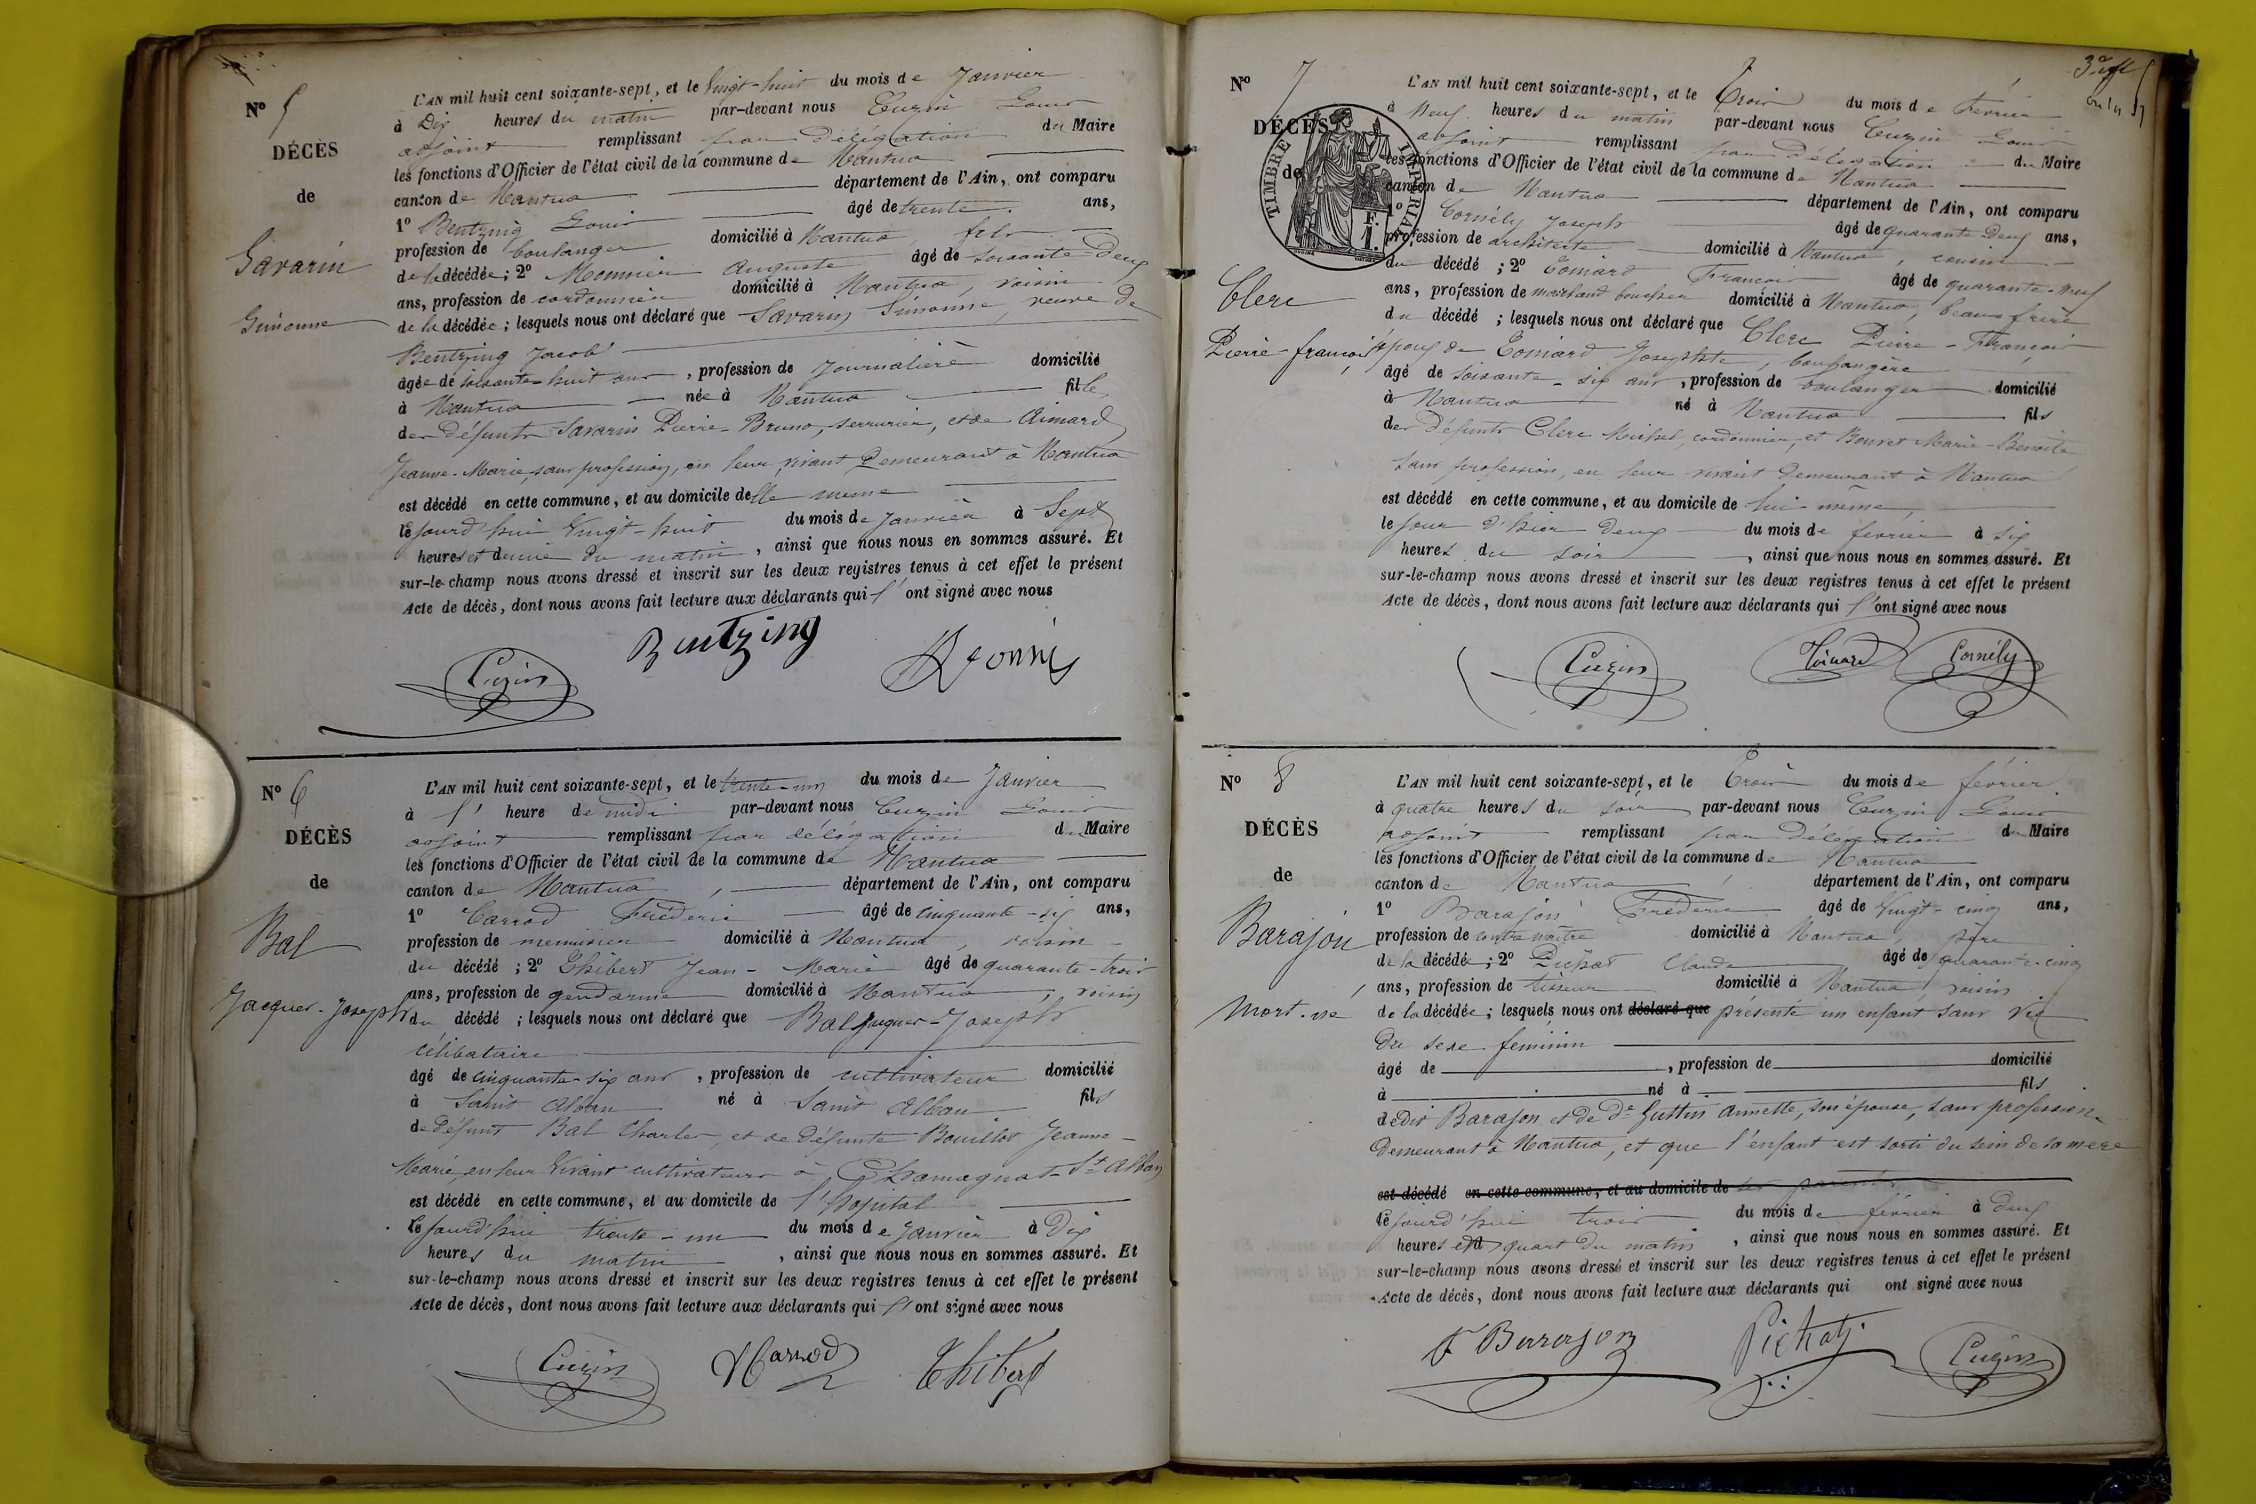 N° 5
DÉCÈS
de
Savarin
Simonne
L'AN mil huit cent soixante-sept, et le Vingt-huit du mois de Janvier
à Dix heures du matin par-devant nous Cuzin Louis
adjoint remplissant par délégation du Maire
les fonctions d'Officier de l'état civil de la commune de Nantua
canton de Nantua département de l'Ain, ont comparu
1° Bentzing Louis âgé de trente ans,
profession de boulanger domicilié à Nantua, fils
de la décédée; 2° Meunier Auguste âgé de soixante-deux
ans, profession de cordonnier domicilié à Nantua, voisin
de la décédée; lesquels nous ont déclaré que Savarin Simonne, veuve de
Bentzing Jacob
âgée de soixante-huit ans, profession de Journalière domicilié
à Nantua née à Nantua fille
des défunts Savarin Pierre-Bruno, serrurier, et de Aimard
Jeanne-Marie, sans profession, en leur vivant demeurant à Nantua
est décédé en cette commune, et au domicile de elle même
le jourd'hui Vingt-huit du mois de Janvier à Sept
heures et demie du matin, ainsi que nous nous en sommes assuré. Et
sur-le-champ nous avons dressé et inscrit sur les deux registres tenus à cet effet le présent
Acte de décès, dont nous avons fait lecture aux déclarants qui l'ont signé avec nous
Bentzing
Cuzin
N° 6
DÉCÈS
de
Bal
Jacques-Joseph
L'AN mil huit cent soixante-sept, et le trente-un du mois de Janvier
à l' heure de midi par-devant nous Cuzin Louis
adjoint remplissant par délégation du Maire
les fonctions d'Officier de l'état civil de la commune de Nantua
canton de Nantua, département de l'Ain, ont comparu
1° Carrod Frédéric âgé de cinquante-six ans,
profession de menuisier domicilié à Nantua, voisin
du décédé; 2° Thibert Jean-Marie âgé de quarante-trois
ans, profession de gendarme domicilié à Nantua, voisin
du décédé; lesquels nous ont déclaré que Bal Jacques-Joseph
célibataire
âgé de cinquante-six ans, profession de cultivateur domicilié
à Saint Alban né à Saint Alban fils
de défunt Bal Charles, et de défunte Bouillod Jeanne-
Marie, en leur vivant cultivateurs à Chamagnat-St Alban
est décédé en cette commune, et au domicile de l'hopital
le jourd'hui trente-un du mois de Janvier à Dix
heures du matin, ainsi que nous nous en sommes assuré. Et
sur-le-champ nous avons dressé et inscrit sur les deux registres tenus à cet effet le présent
Acte de décès, dont nous avons fait lecture aux déclarants qui l'ont signé avec nous
Cuzin Carrod Thibert
N° 7
DÉCÈS
de
TIMBRE IMPERIAL
F.
1.
Clerc
Pierre-françois
L'AN mil huit cent soixante-sept, et le Trois du mois de Février
à Neuf heures du matin par-devant nous Cuzin Louis
adjoint remplissant par délégation du Maire
les fonctions d'Officier de l'état civil de la commune de Nantua
canton de Nantua département de l'Ain, ont comparu
1° Cornély Joseph âgé de quarante Deux ans,
profession de architecte domicilié à Nantua, cousin
du décédé; 2° Toinard François âgé de quarante-neuf
ans, profession de marchand boucher domicilié à Nantua, beau frère
du décédé; lesquels nous ont déclaré que Clerc Pierre-François
époux de Toinard Josephte, boulangère
âgé de soixante-six ans, profession de boulanger domicilié
à Nantua né à Nantua fils
des défunts Clerc Michel, cordonnier, et Bouvet Marie-Benoite
sans profession, en leur vivant demeurant à Nantua
est décédé en cette commune, et au domicile de lui-même,
le jour d'hier deux du mois de février à six
heures du soir, ainsi que nous nous en sommes assuré. Et
sur-le-champ nous avons dressé et inscrit sur les deux registres tenus à cet effet le présent
Acte de décès, dont nous avons fait lecture aux déclarants qui l'ont signé avec nous
Cuzin Toinard Cornély
N° 8
DÉCÈS
de
Barajon
Mort-né
L'AN mil huit cent soixante-sept, et le Trois du mois de février
à quatre heures du soir par-devant nous Cuzin Louis
adjoint remplissant par délégation du Maire
les fonctions d'Officier de l'état civil de la commune de Nantua
canton de Nantua département de l'Ain, ont comparu
1° Barajon Frédéric âgé de Vingt-cinq ans,
profession de contre maître domicilié à Nantua, père
de la décédée; 2° Pichat Claude âgé de quarante-cinq
ans, profession de tisseur domicilié à Nantua, voisin
de la décédée; lesquels nous ont déclaré que présenté un enfant sans Vie
du sexe féminin
âgé de , profession de domicilié
à né à fils
dedit Barajon et de De Guttin Annette, son épouse, sans profession
demeurant à Nantua, et que l'enfant est sorti du sein de sa mère
est décédé en cette commune, et au domicile de ses parents
le jourd'hui trois du mois de février à deux
heures et quart du matin, ainsi que nous nous en sommes assuré. Et
sur-le-champ nous avons dressé et inscrit sur les deux registres tenus à cet effet le présent
Acte de décès, dont nous avons fait lecture aux déclarants qui ont signé avec nous
F Barajon Pichat Cuzin